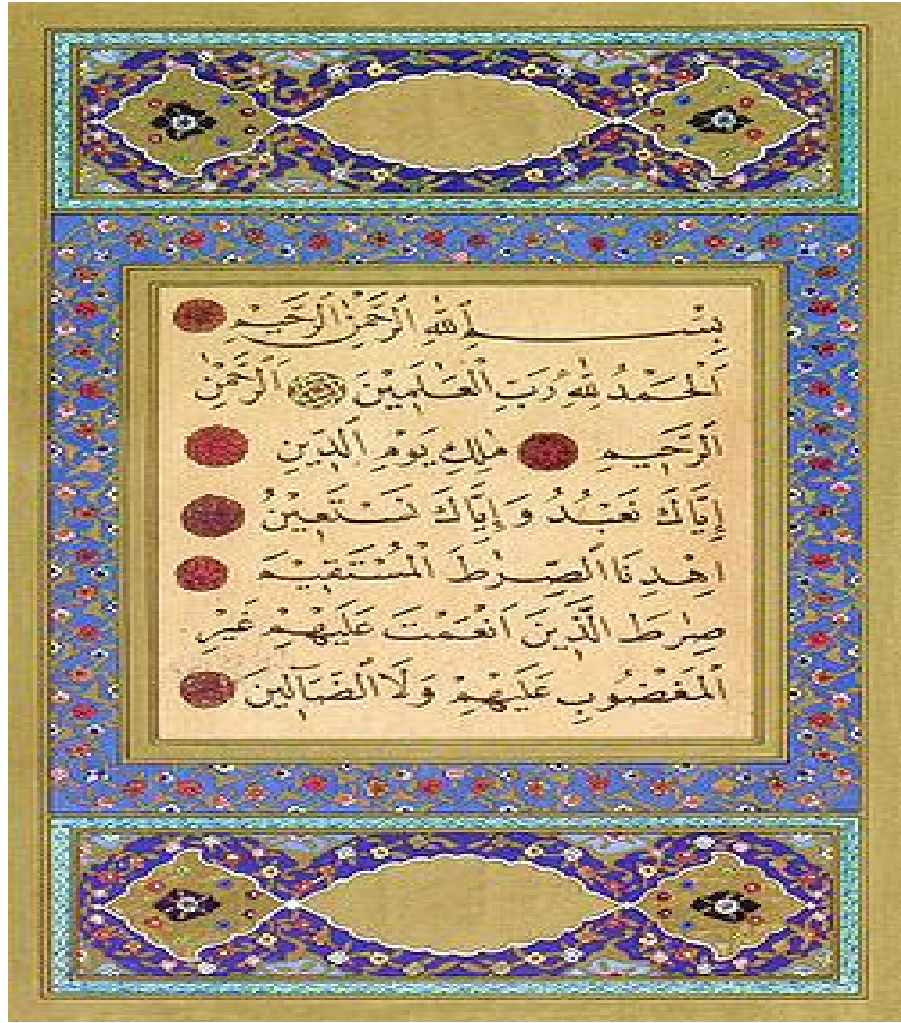 بِسْمِ اللهِ الرَّحْمٰنِ الرَّحِيمِ
اَلْحَمْدُ لِلّٰهِ رَبِّ الْعَالَمِينَ الرَّحْمٰنِ
الرَّحِيمِ مٰلِكِ يَوْمِ الدِّينِ
إِيَّاكَ نَعْبُدُ وَإِيَّاكَ نَسْتَعِينُ
اِهْدِنَا الصِّرٰطَ الْمُسْتَقِيمَ
صِرٰطَ الَّذِينَ اَنْعَمْتَ عَلَيْهِمْ غَيْرِ
الْمَغْضُوبِ عَلَيْهِمْ وَلَا الضَّآلِّينَ